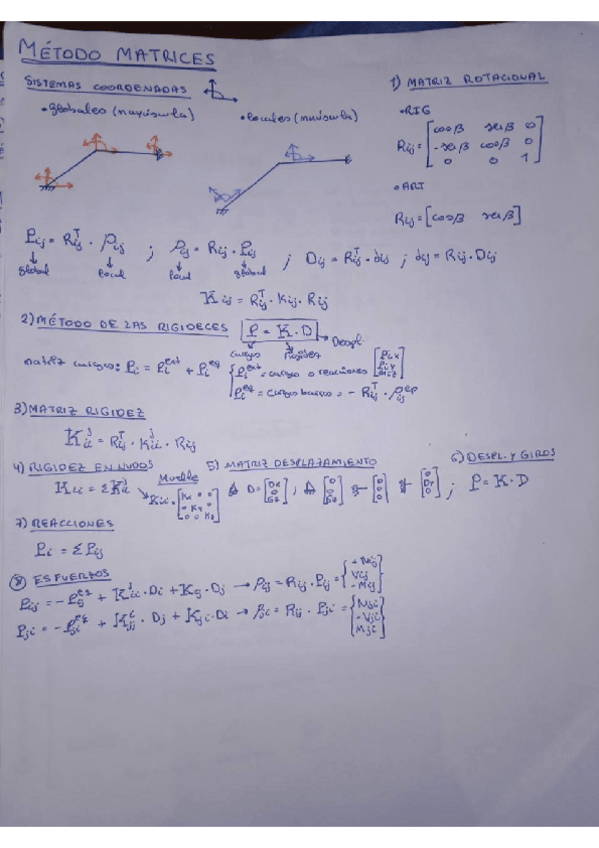 MÉTODO MATRICES
SISTEMAS COORDENADAS
• globales (mayúscula)
• locales (minúscula)
1) MATRIZ ROTACIONAL
• RIG
Rij = [cosβ senβ 0
-senβ cosβ 0
0 0 1]
• ART
Rij = [cosβ senβ]
Pij = Rijᵀ · ρij ; ρij = Rij · Pij ; Dij = Rijᵀ · dij ; dij = Rij · Dij
global local local global
Kij = Rijᵀ · Kij · Rij
2) MÉTODO DE LAS RIGIDECES P = K · D → Despl
cargas rigidez
matriz cargas: Pi = Piext + Pieq { Piext = cargas o reacciones [Pix
Piy
Miz]
Pieq = cargas barras = - Rijᵀ · ρijep
3) MATRIZ RIGIDEZ
Kiiʲ = Rijᵀ · Kiiʲ · Rij
4) RIGIDEZ EN NUDOS
Kii = ΣKiiʲ
Muelle
Kii = [Kx 0 0
0 Ky 0
0 0 Kz]
5) MATRIZ DESPLAZAMIENTO
6) DESPL. Y GIROS
P = K · D
7) REACCIONES
Pi = ΣPij
8 ESFUERZOS
Pij = -Pijeq + Kiiʲ · Di + Kij · Dj → ρij = Rij · Pij = {+Nij
Vij
-Mij}
Pji = -Pjieq + Kjjⁱ · Dj + Kji · Di → ρji = Rij · Pji = {Nji
-Vji
Mji}